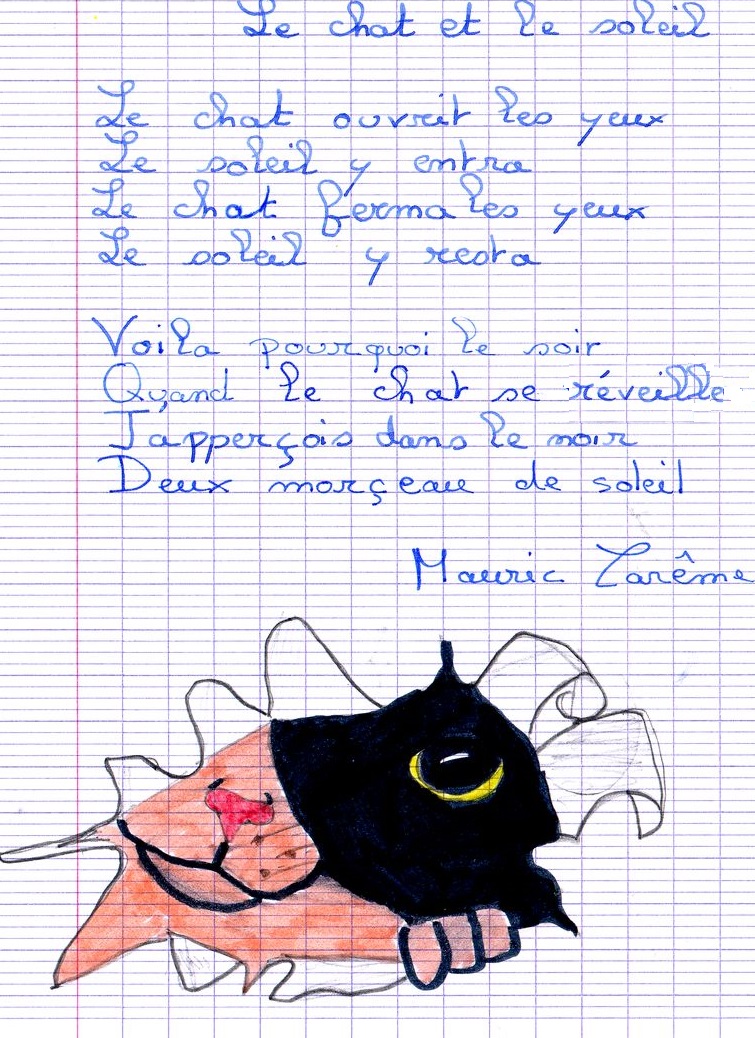 Le chat et le soleil
Le chat ouvrit les yeux
Le soleil y entra
Le chat ferma les yeux
Le soleil y resta
Voila pourquoi le soir
Quand le chat se réveille
J'apperçois dans le noir
Deux morçeau de soleil
Mauric Carême